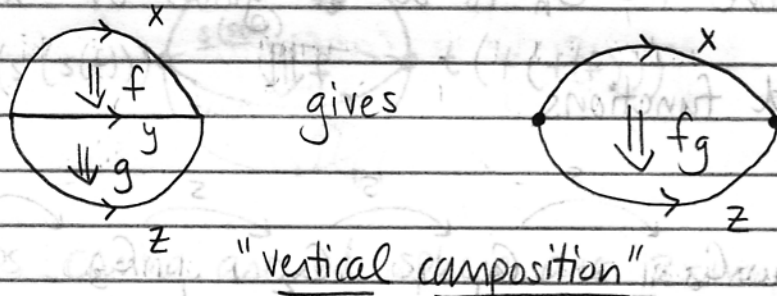 x
f
y
g
z
gives
x
fg
z
"vertical composition"